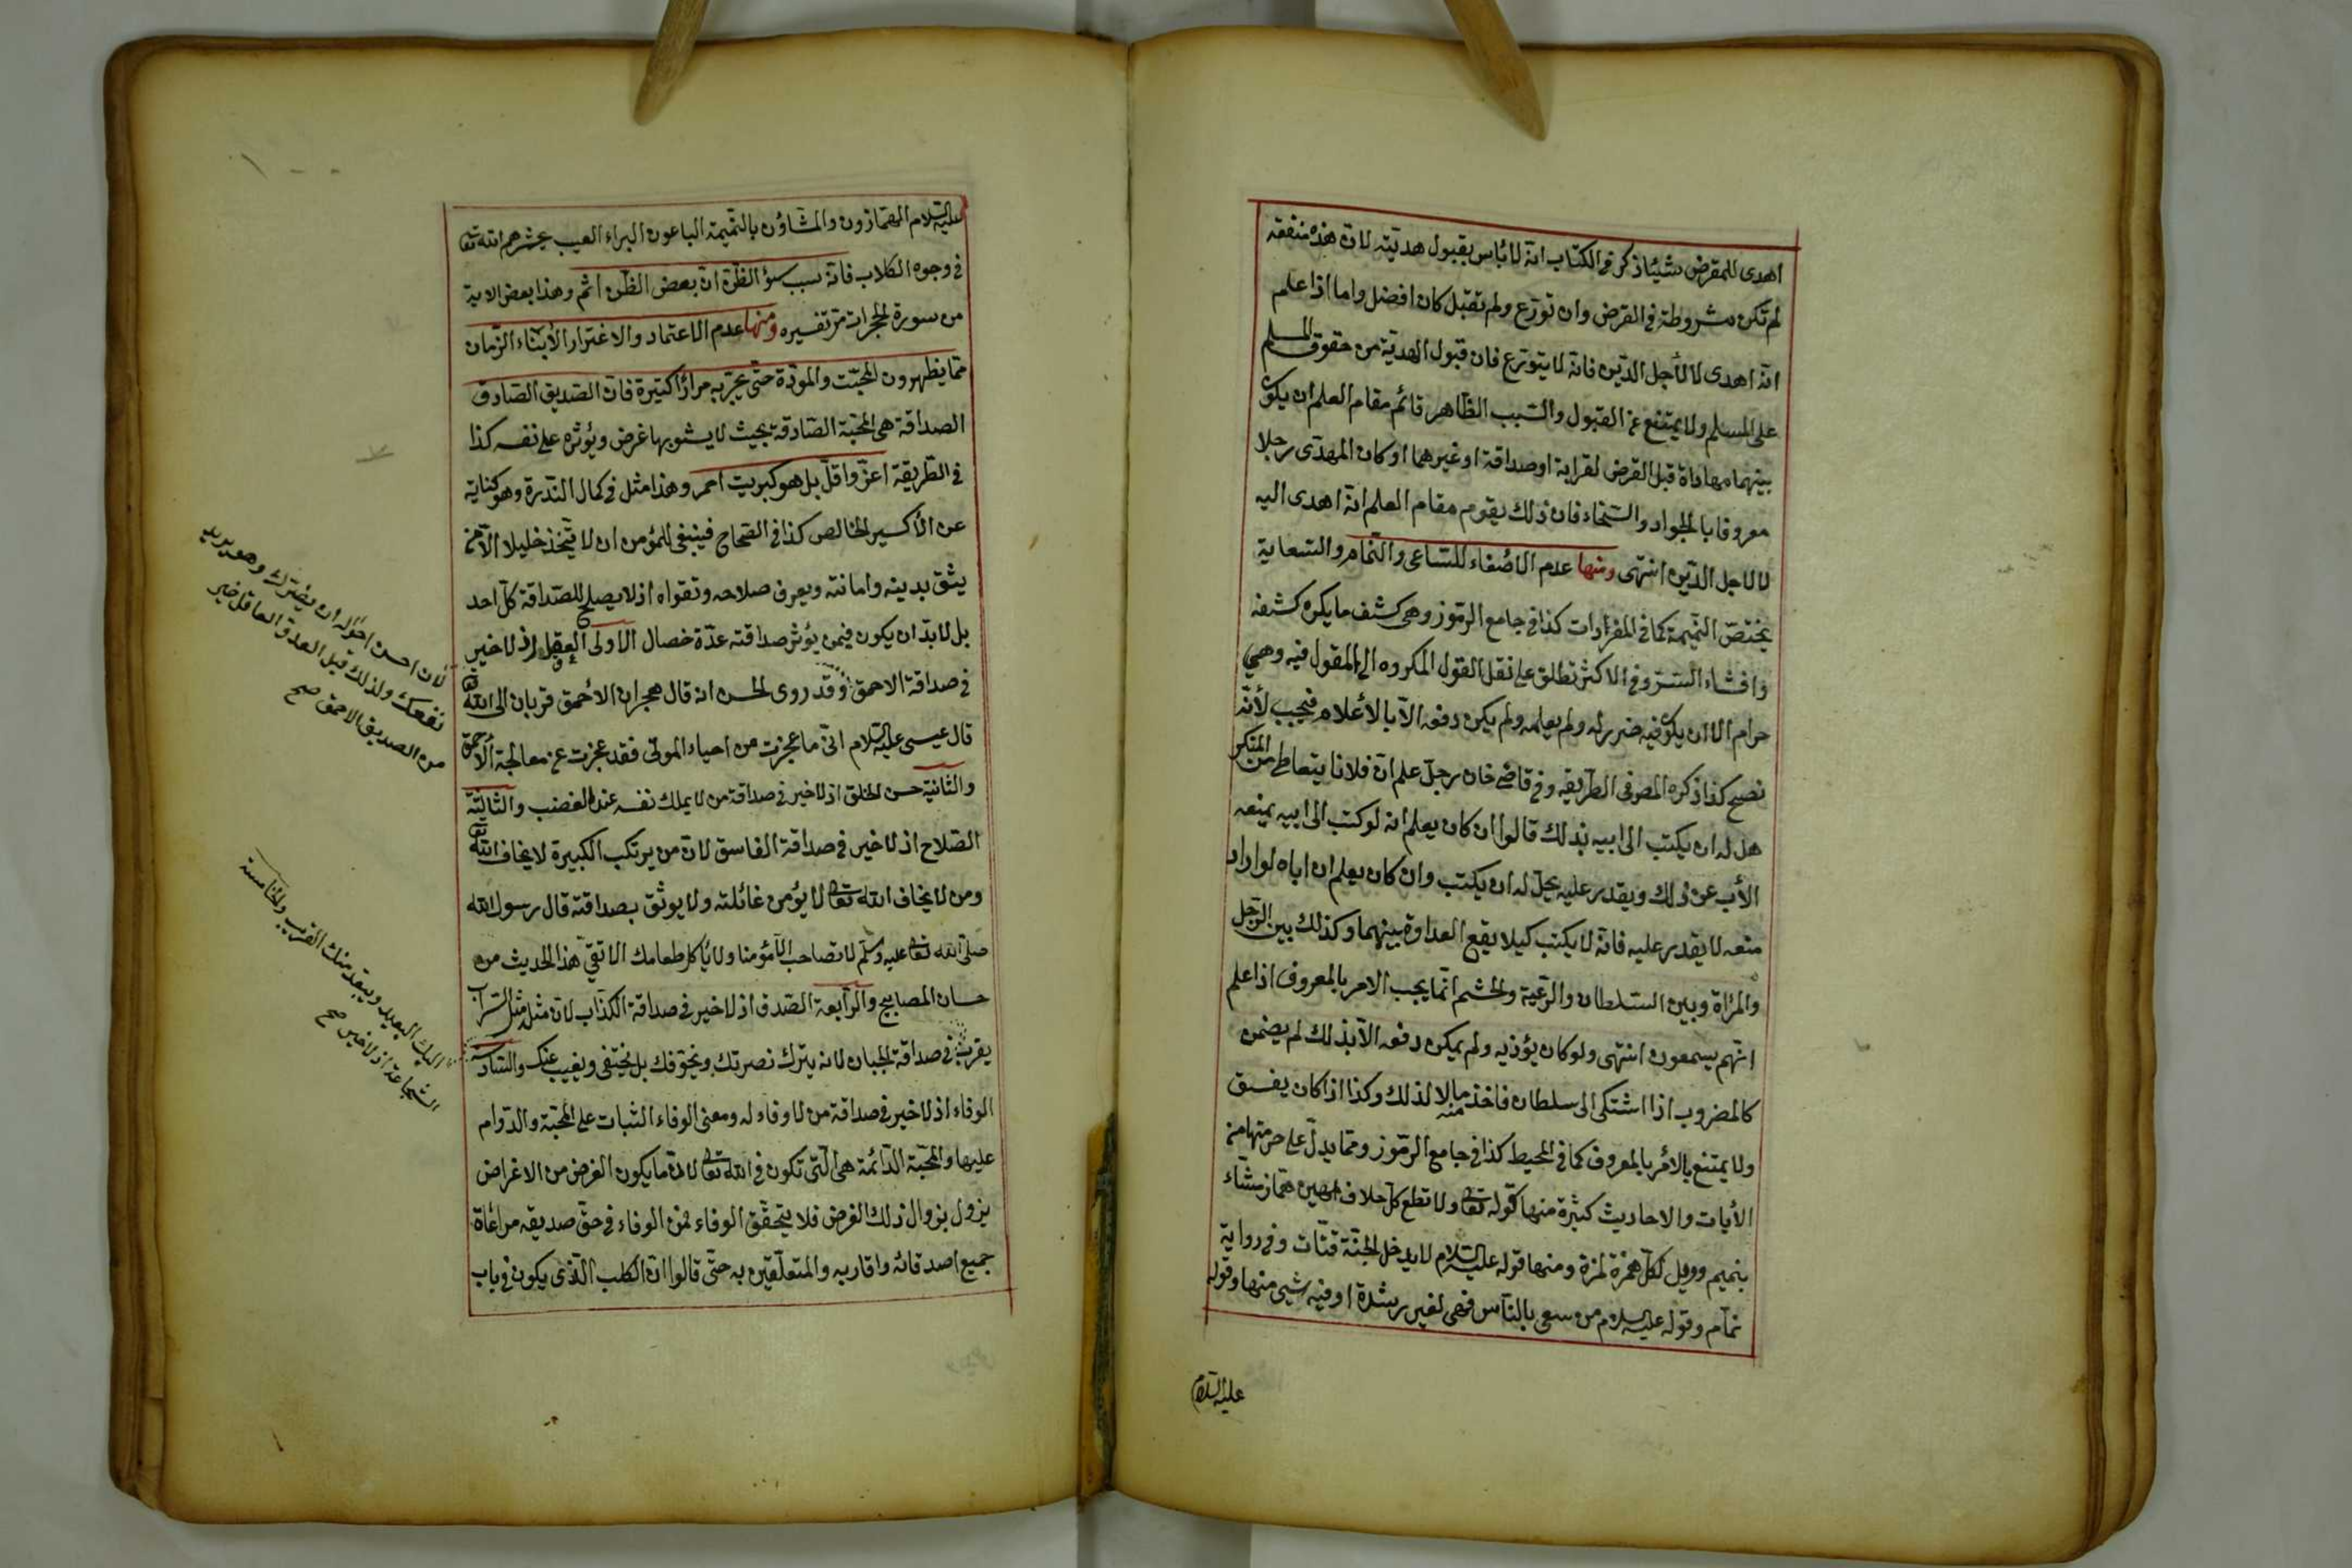 اهدى للمقرض شيئا ذكر فى الكتاب انه لا بأس بقبول هديته لان هذه منفعة
لم تكن مشروطة فى القرض وان تورع ولم تقبل كان افضل واما اذا علم
انه اهدى لا لأجل الدين فانه لا يتورع فان قبول الهدية من حقوق المسلم
على المسلم ولا يمتنع عن القبول والسبب الظاهر قائم مقام العلم ان يكون
بينهما مهاداة قبل القرض لقرابة او صداقة او غيرهما او كان المهدى رجلا
معروفا بالجواد والسخاء فان ذلك يقوم مقام العلم انه اهدى اليه
لا لاجل الدين انتهى ومنها عدم الاصغاء للساعى والنمام والسعاية
يختص النميمة كما فى المفرادات كذا فى جامع الرموز وهى كشف ما يكره كشفه
وافشاء السر وفى الاكثر تطلق على نقل القول المكروه الى المقول فيه وهى
حرام الا ان يكون فيه ضرر له ولم يعلمه ولم يكن دفعه الا بالأعلام فيجب لأنه
نصح كذا ذكره المص فى الطريقه وفى قاضى خان رجل علم ان فلانا يتعاطى من المنكر
هل له ان يكتب الى ابيه بذلك قالوا ان كان يعلم انه لو كتب الى ابيه يمنعه
الأب عن ذلك ويقدر عليه يحل له ان يكتب وان كان يعلم ان اباه لو اراد
منعه لا يقدر عليه فانه لا يكتب كيلا يقع العداوة بينهما وكذلك بين الرجل
والمرأة وبين السلطان والرعية والحشم انما يجب الامر بالمعروف اذا علم
انهم يسمعون انتهى ولو كان يؤذيه ولم يمكن دفعه الا بذلك لم يضمن
كالمضروب اذا اشتكى الى سلطان فاخذ منه مالا لذلك وكذا اذا كان يفسق
ولا يمتنع بالأمر بالمعروف كما فى المحيط كذا فى جامع الرموز ومما يدل على حرمتها من
الأيات والاحاديث كثيرة منها قوله تعا ولا تطع كل حلاف مهين هماز مشاء
بنميم وويل لكل همزة لمزة ومنها قوله عليه السلام لا يدخل الجنة قتات وفى رواية
نمام وقوله عليه السلام من سعى بالناس فهى لغير رشدة او فيه شيئ منها وقوله
عليه السلام
عليه السلام الهمازون والمشاؤن بالنميمة الباعون البراء العيب يحشرهم الله تعا
فى وجوه الكلاب فانه سبب سؤ الظن ان بعض الظن اثم وهذا بعض الاية
من سورة الحجرات مر تفسيره ومنها عدم الاعتماد والاغترار الأبناء الزمان
مما يظهرون المحبت والمودة حتى يجربه مرارا كثيرة فان الصديق الصادق
الصداقة هى المحبة الصادقة بحيث لا يشوبها غرض ويؤثره على نفسه كذا
فى الطريقة اعز واقل بل هو كبريت احمر وهذا مثل فى كمال الندرة وهو كناية
عن الأكسير الخالص كذا فى الصحاح فينبغى للمؤمن ان لا يتخذ خليلا الا من
يثق بدينه وامانته ويعرف صلاحه وتقواه اذ لا يصلح للصداقة كل احد
بل لا بد ان يكون فيمن يؤثر صداقته عدة خصال الاولى العقل اذ لا خير
فى صداقة الاحمق وقد روى الحسن انه قال هجران الأحمق قربان الى الله
قال عيسى عليه السلام انى ما عجزت من احياء الموتى فقد عجزت عن معالجة الأحمق
والثانية حسن الخلق اذ لا خير فى صداقة من لا يملك نفسه عند الغضب والثالثة
الصلاح اذ لا خير فى صداقة الفاسق لان من يرتكب الكبيرة لا يخاف الله
ومن لا يخاف الله تعا لا يؤمن غائلته ولا يوثق بصداقته قال رسول الله
صلى الله تعا عليه وسلم لا تصاحب الا مؤمنا ولا يأكل طعامك الا تقي هذا الحديث من
حسان المصابيح والرابعة الصدق اذ لا خير فى صداقة الكذاب لان مثله مثل السراب
يقرب فى صداقة الجبان لانه يترك نصرتك ويخوفك بل يختفى ويغيب عنك والسادسة
الوفاء اذ لا خير فى صداقة من لا وفاء له ومعنى الوفاء الثبات على المحبة والدوام
عليها والمحبة الدائمة هى التى تكون فى الله تعا لان ما يكون الغرض من الاغراض
يزول بزوال ذلك الغرض فلا يتحقق الوفاء فمن الوفاء فى حق صديقه مراعاة
جميع اصدقائه واقاربه والمتعلقين به حتى قالوا ان الكلب الذى يكون فى باب
لأن احسن احواله ان يضرك وهو يريد
نفعك ولذلك قيل العدو العاقل خير
من الصديق الاحمق صح
اليك البعيد ويبعد منك القريب والخامسة
الشجاعة اذ لا خير صح